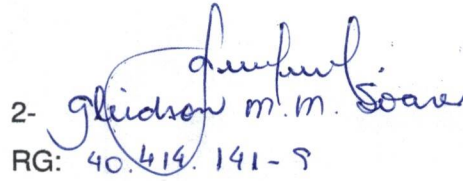 2- Gleidson M. M. Soares
RG: 40.414.141-9